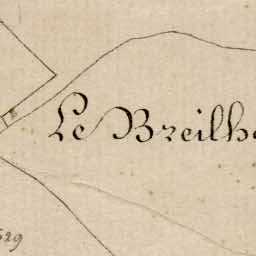 Le Breilh
529